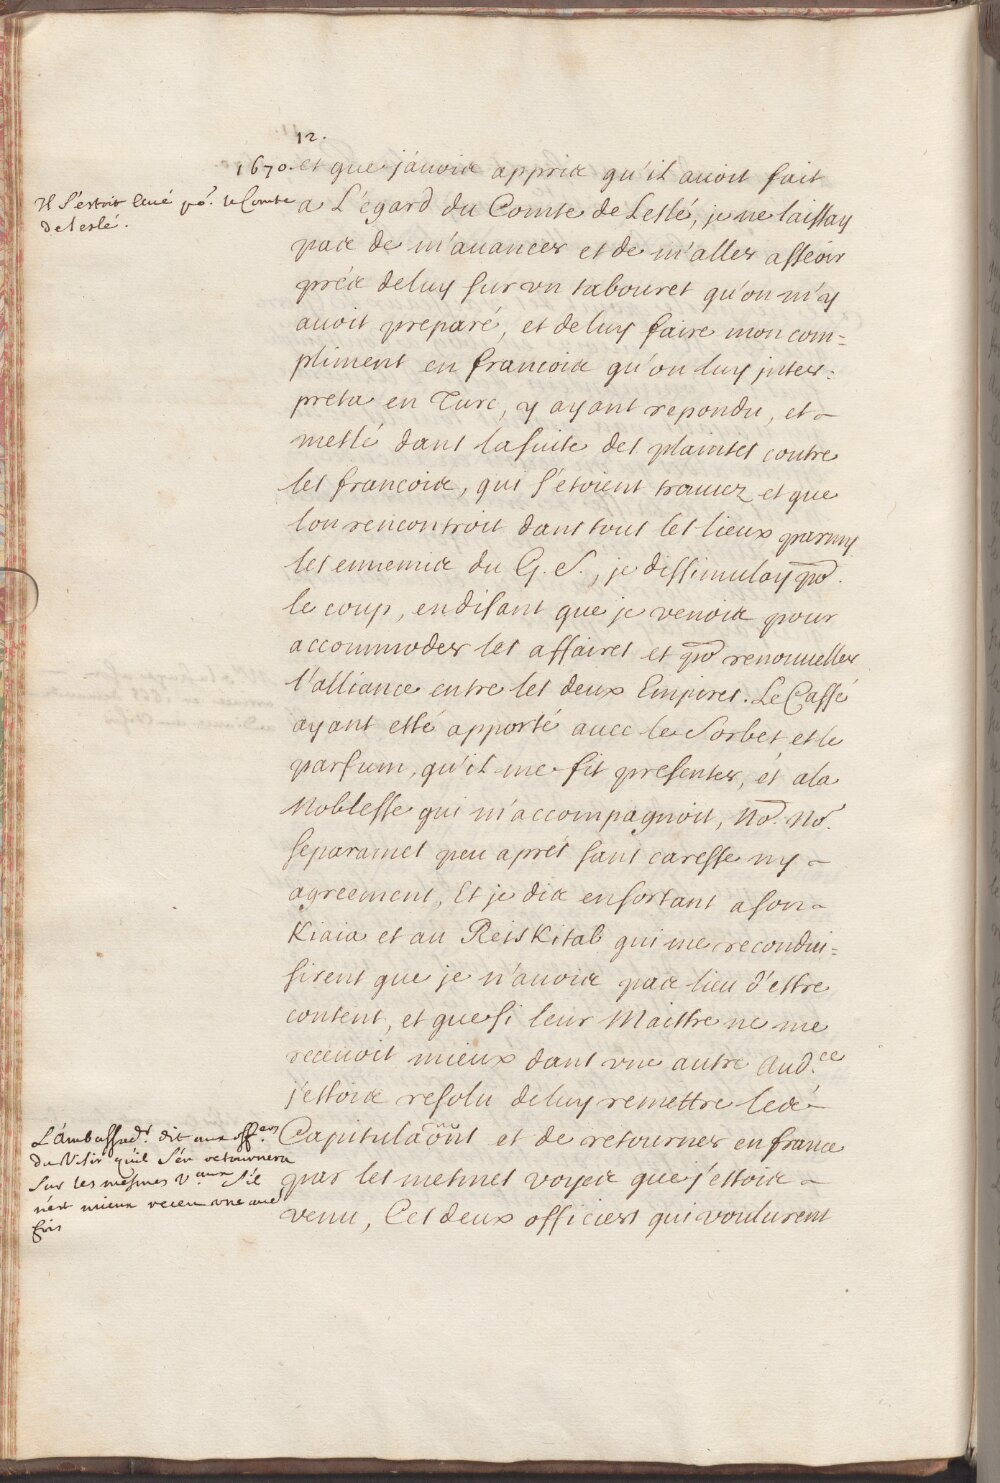 12.
1670. et que j'avois appris qu'il avoit fait
Il s'estoit levé po.r le Comte
de Leslé.
a L'égard du Comte de Leslé, je ne laissay
pas de m'avancer et de m'aller asseoir
prés de luy sur vn tabouret qu'on m'y
avoit preparé, et de luy faire mon com=
pliment en francois qu'on luy inter=
preta en Turc, y ayant repondu, et
meslé dans la suite des plaintes contre
les francois, qui s'etoient trouvez et que
lon rencontroit dans tous les lieux parmy
les ennemis du G. S., je dissimulay po.r
le coup, en disant que je venois pour
accommoder les affaires et po.r renouveller
l'alliance entre les deux Empires. Le Caffé
ayant esté apporté avec le Sorbet et le
parfum, qu'il me fit presenter, et a la
Noblesse qui m'accompagnoit, No.s No.s
separames peu aprés sans caresse ny
agreement, Et je dis en sortant a son
Kiaia et au Reis Kitab qui me recondui=
sirent que je n'avois pas lieu d'estre
content, et que si leur Maistre ne me
recevoit mieux dans vne autre Aud.ce
j'estois resolu de luy remettre les
L'Ambassad.r dit aux off.ers
du Visir qu'il s'en retournera
sur les mesmes V.aux s'il
n'est mieux receu vne au.e
fois
Capitula͠ons et de retourner en france
par les mesmes voyes que j'estois
venu, Ces deux officiers qui voulurent